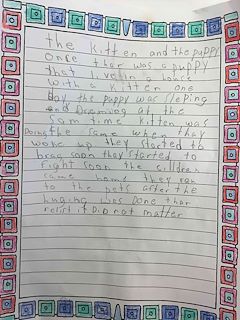 the kitten and the puppy
Once ther was a puppy
that live in a house
with a kitten one
day the puppy was sleping
and Dreaming at the
sam time kitten was
Doing the same when thay
woke up they started to
brag soon they started to
fight soon the cildren
came home they ran
to the pets after the
huging was Done thar
relist it DiD not matter